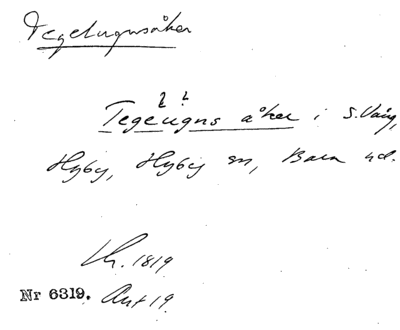 Tegelugnsåker
? ?
Tegeugns åker i S. Vång,
Hyby, Hyby sn, Bara hd.
Lh. 1819
Nr 6319. Akt 19.